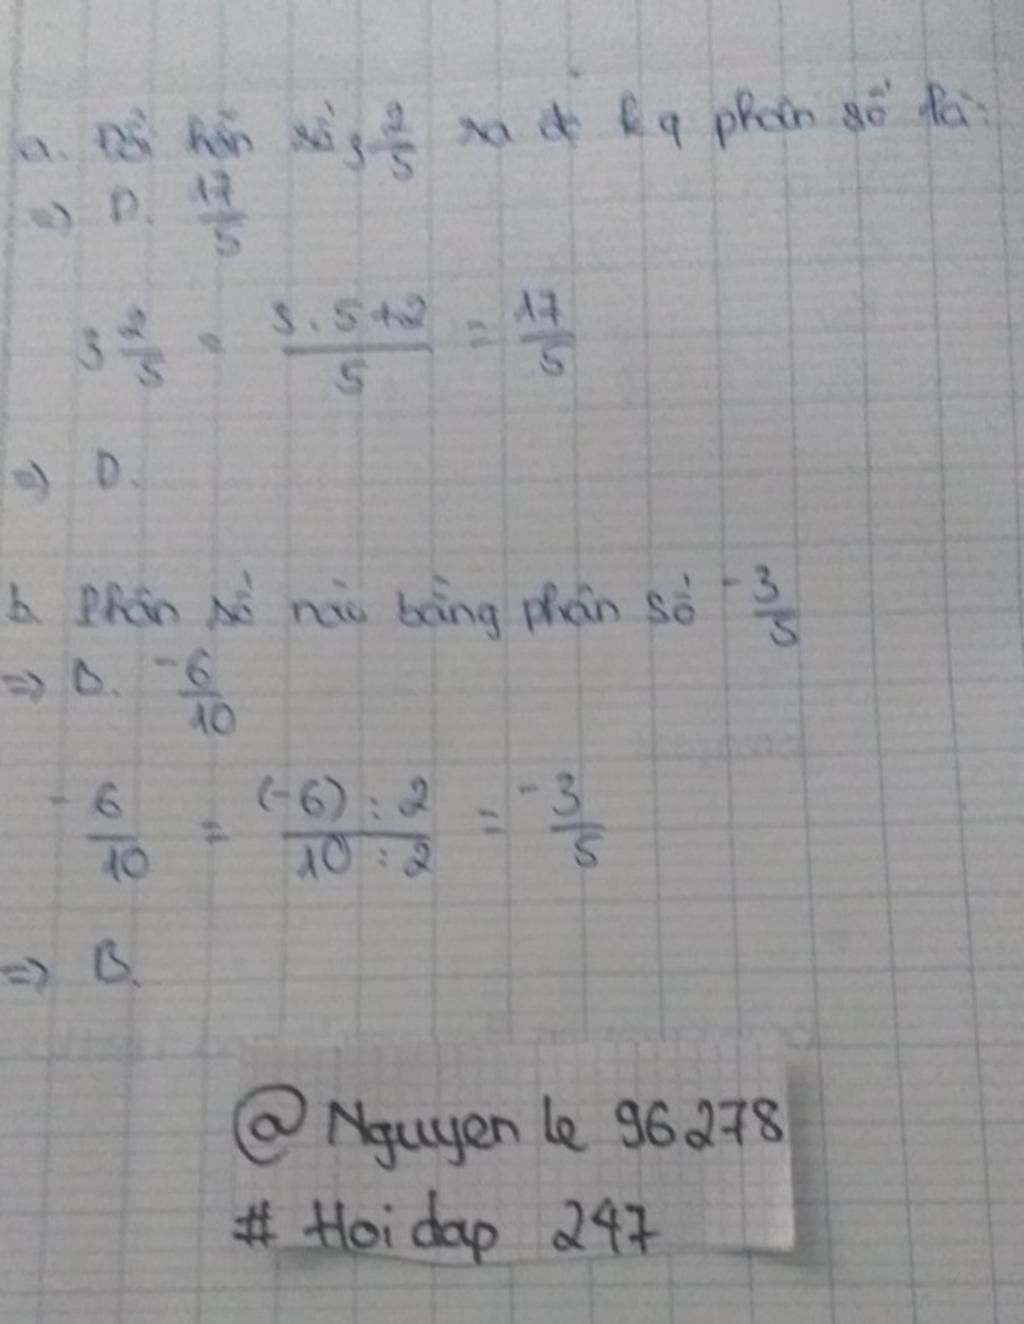 a. Đổi hỗn số 3 2/5 ra đc k q phân số là:
=> D. 17/5
3 2/5 = 3.5+2/5 = 17/5
=> D.
b. Phân số nào bằng phân số -3/5
=> B. -6/10
-6/10 = (-6):2/10:2 = -3/5
=> B.
@Nguyen le 96278
# Hoi dap 247